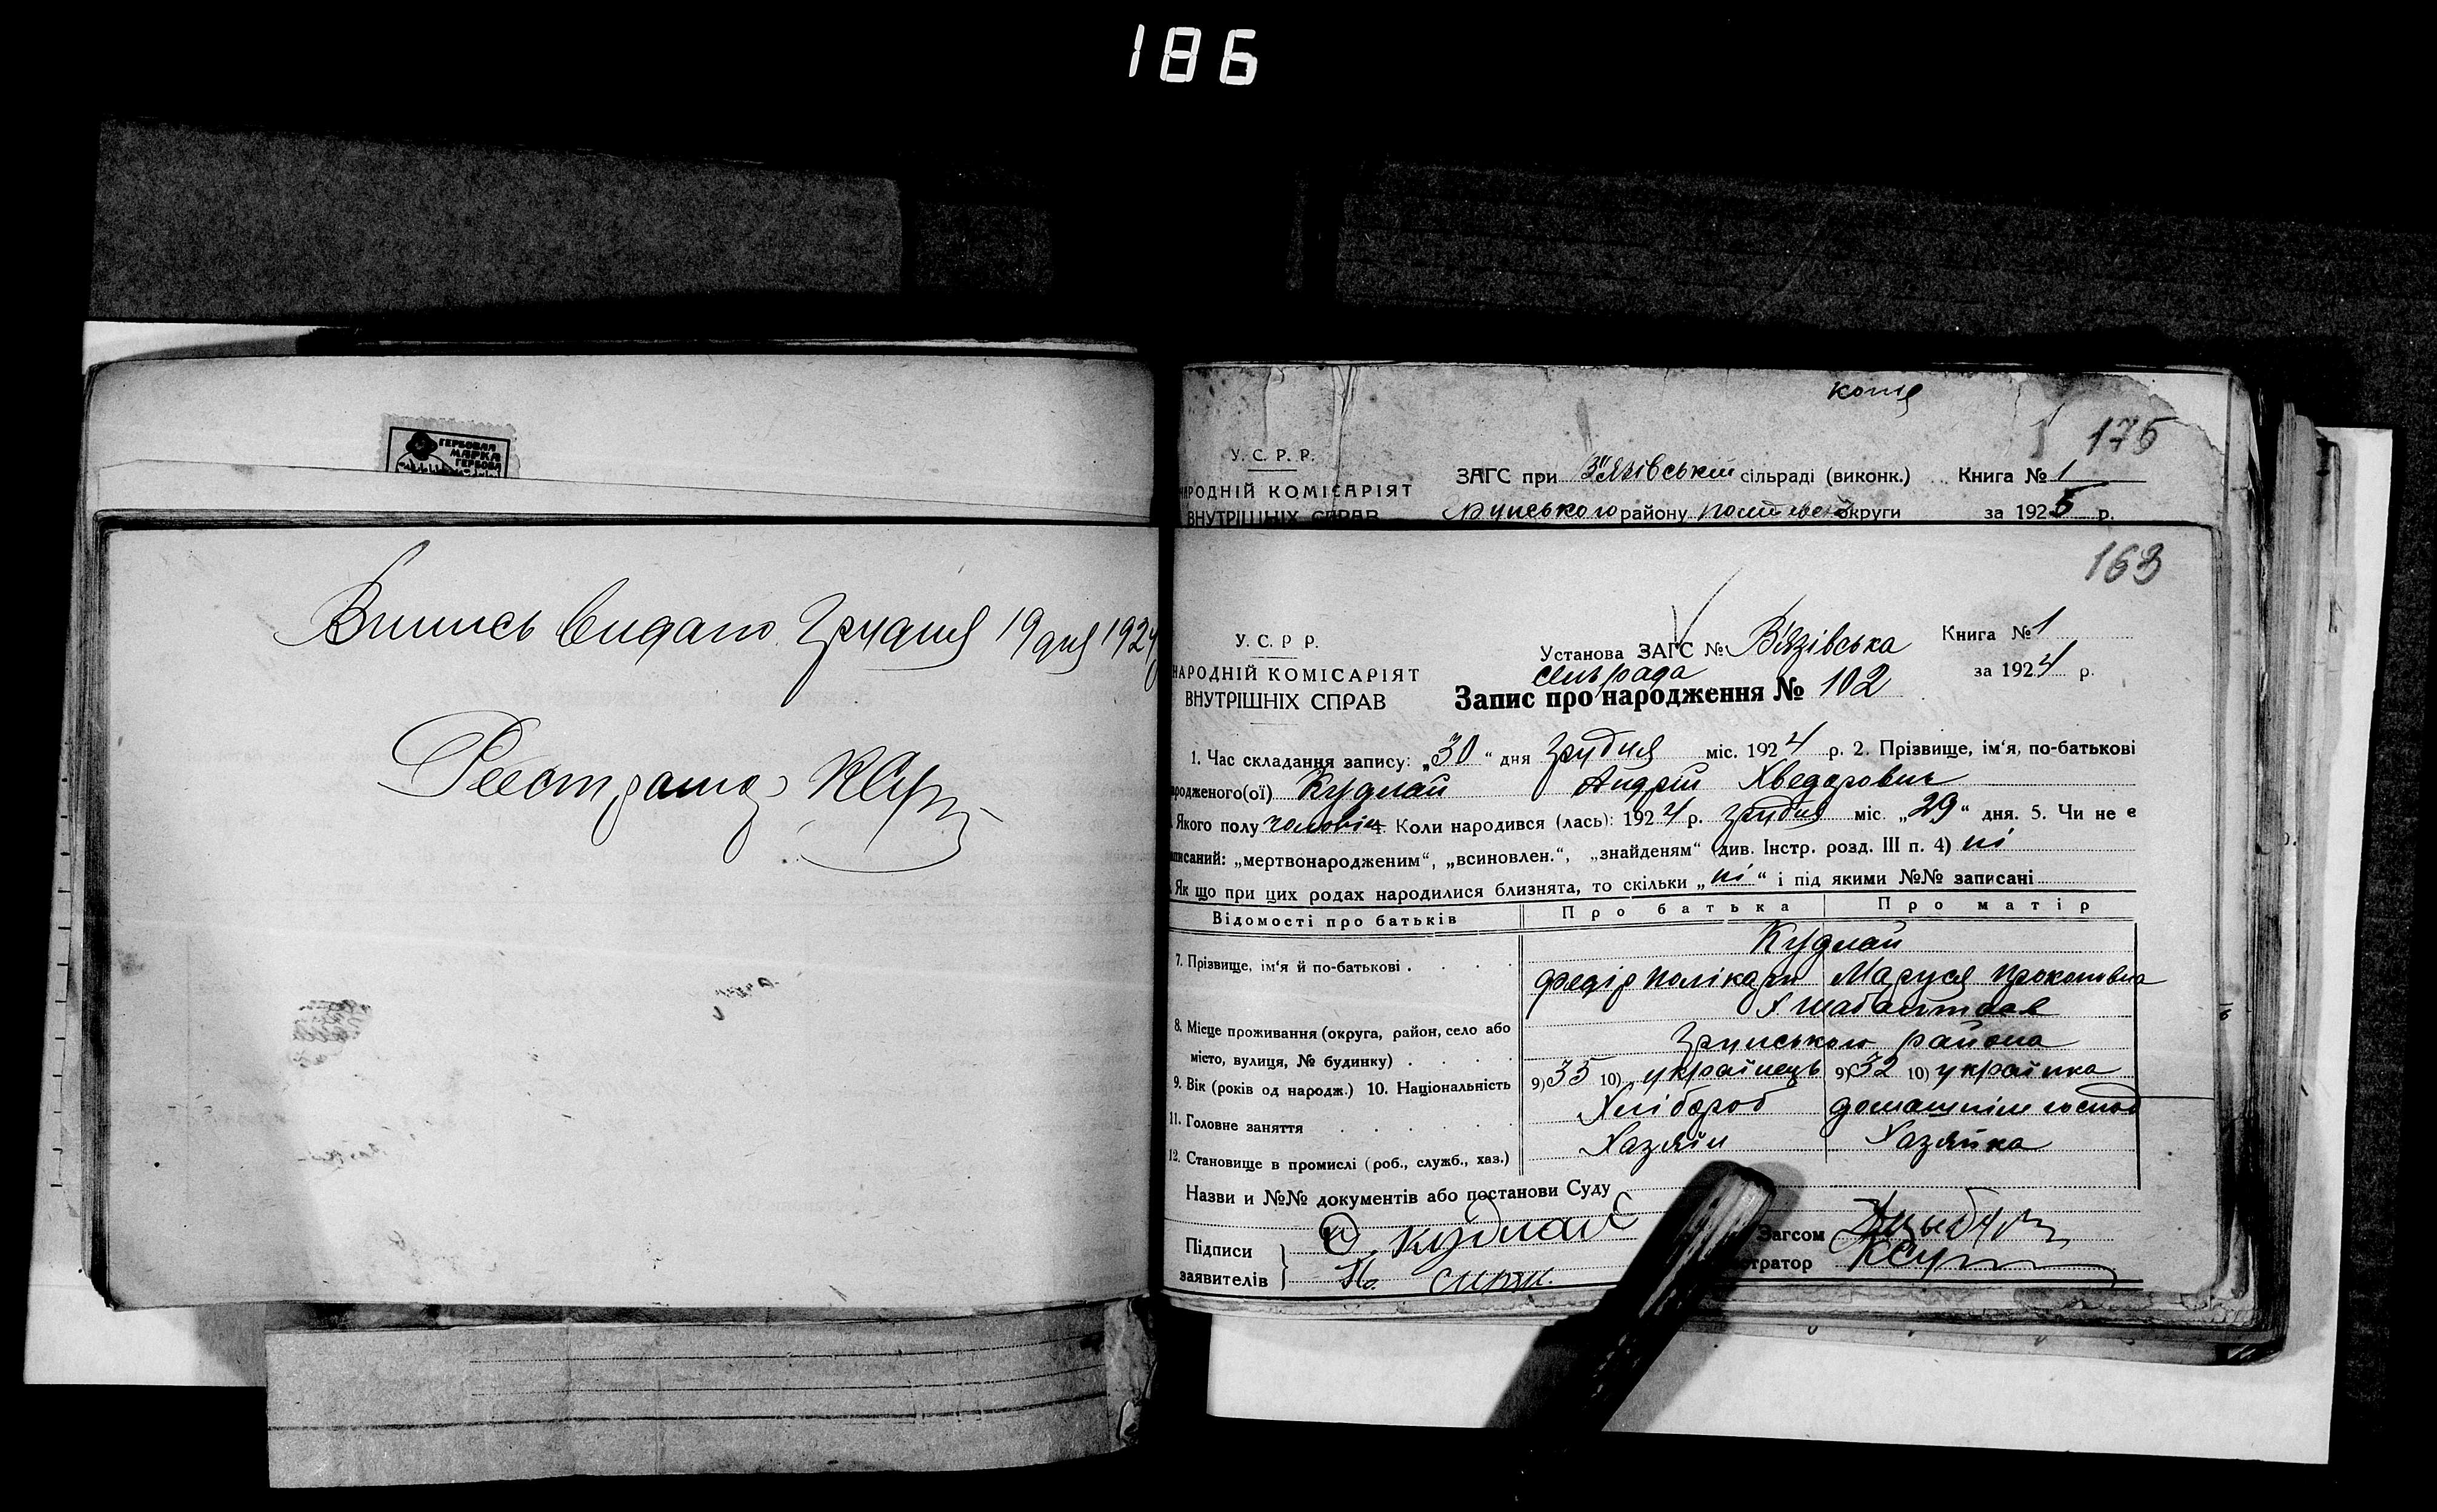 186
ГЕРБОВАЯ
МАРКА
ГЕРБОВА
Выпись видано Грудня 19 дня 1924
Реєстратор
копія
175
У. С. Р. Р.
НАРОДНІЙ КОМІСАРІЯТ
ВНУТРІШНІХ СПРАВ
ЗАГС при В'язівській сільраді (виконк.) Книга № 1
району округи за 1925 р.
163
У. С. Р Р.
НАРОДНІЙ КОМІСАРІЯТ
ВНУТРІШНІХ СПРАВ
Установа ЗАГС № В'язівська Книга № 1
сільрада за 1924 р.
Запис про народження № 102
1. Час складання запису: „30" дня Грудня міс. 1924 р. 2. Прізвище, ім'я, по-батькові
родженого(ої) Кудлай Андрій Хведорович
Якого полу чоловіч. 4. Коли народився (лась): 1924 р. Грудня міс. „29" дня. 5. Чи не є
записаний: „мертвонародженим", „всиновлен.", „знайденям" (див. Інстр. розд. III п. 4) ні
Як що при цих родах народилися близнята, то скільки „ні" і під якими №№ записані
Відомості про батьків Про батька Про матір
7. Прізвище, ім'я й по-батькові . Кудлай
Федір Полікарп Маруся Прокопівна
8. Місце проживання (округа, район, село або
місто, вулиця, № будинку) . району
9. Вік (років од народж.) 10. Національність 9) 35 10) українець 9) 32 10) українка
11. Головне заняття Хлібороб домашнім господ
12. Становище в промислі (роб., служб., хаз.) Хазяїн Хазяйка
Назви и №№ документів або постанови Суду
Підписи Ф. Кудлай Загсом
заявителів стратор